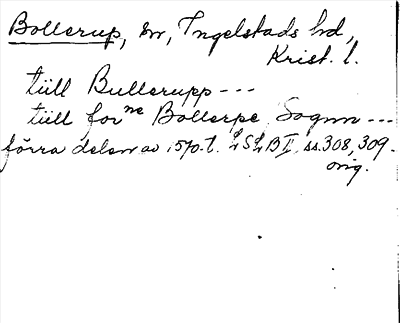 Bollerup, sn, Ingelstads hd,
Krist. l.
tiill Bullerupp ---
tiill for ne Bollerpe Sognn ---
förra delen av 1570-t. LSLB II, ss. 308, 309.
orig.